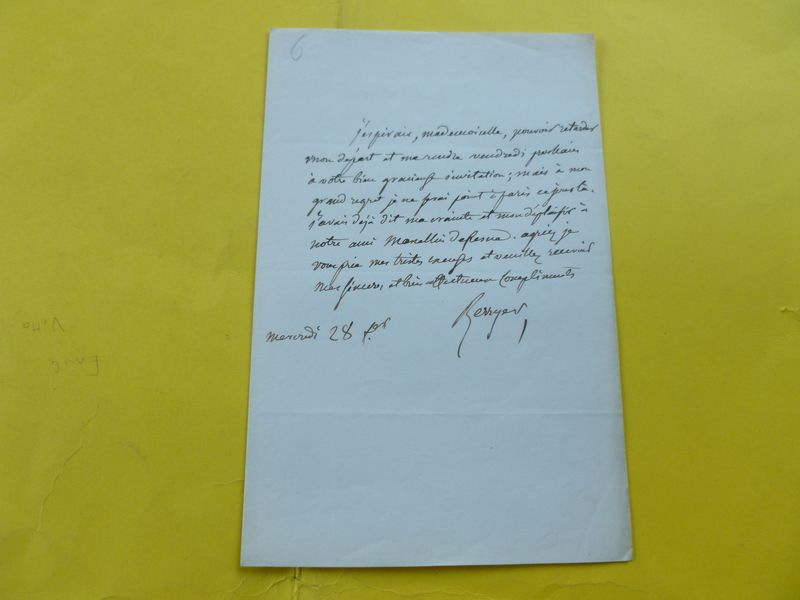 6
j'espérais, mademoiselle, pouvoir retarder
mon départ et me rendre vendredi prochain
à votre bien gracieuse invitation; mais à mon
grand regret je ne serai point à Paris ce jour là.
j'avais déjà dit ma crainte et mon déplaisir à
notre ami Marcellin. agréez je
vous prie mes tristes excuses et veuillez recevoir
mes sincères et bien affectueux compliments
Berryer
mercredi 28